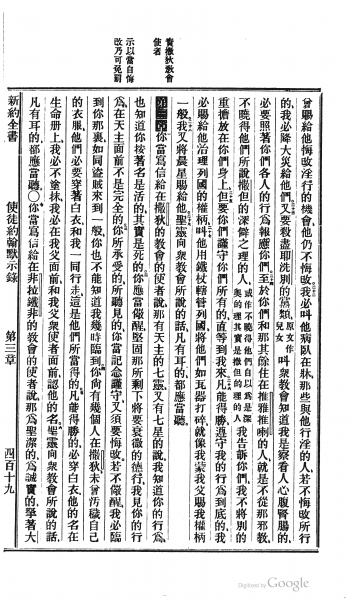 責撒狄教會
使者
示以當自悔
改乃可免罰
曾賜給他悔改淫行的機會、他仍不悔改、我必叫他病臥在牀、那些與他行淫的人、若不悔改所行
的、我必降大災給他們、又要殺盡耶洗別的黨類、原文作兒女叫衆教會知道我是察看人心腹腎腸的、
必要照著你們各人的行為報應你們、至於你們和那其餘住在推雅推喇的人、就是不從那邪教、
不曉得他們所說撒但的深僻之理的人、或作不曉得他們自以為是深奧的理其實是撒但的理的人我告訴你們、我不將別的
重擔放在你們身上、但要你們謹守你們所有的、直等到我來、凡能得勝遵守我的行為到底的、我
必賜給他治理列國的權柄、叫他用鐵杖轄管列國、將他們如瓦器打碎、就像我蒙我父賜我權柄
一般、我又將晨星賜給他、聖靈向衆教會所說的話、凡有耳的、都應當聽、
第三章 你當寫信給在撒狄的教會的使者說、那有天主的七靈、又有七星的說、我知道你的行為、
也知道你按著名是活的、其實是死的、你應當儆醒、堅固那所剩下將要衰微的德行、我見你的行
為、在天主面前不是完全的、你所承受的所聽見的、你當記念謹守、又須要悔改、若不儆醒、我必臨
到你那裏、如同盜賊來到一般、你也不能知道我幾時臨到、你尚有幾個人在撒狄未曾污穢自己
的衣服、他們必要穿著白衣、和我一同行走、這是他們所當得的、凡能得勝的、必穿白衣、他的名在
生命册上、我必不塗抹、我必在我父面前、和我父衆使者面前、認他的名、聖靈向衆教會所說的話、
凡有耳的、都應當聽、〇你當寫信給在非拉鐵非的教會的使者說、那為聖潔的、為誠實的、拏著大
新約全書 使徒約翰默示錄 第三章 四百十九
Digitized by Google